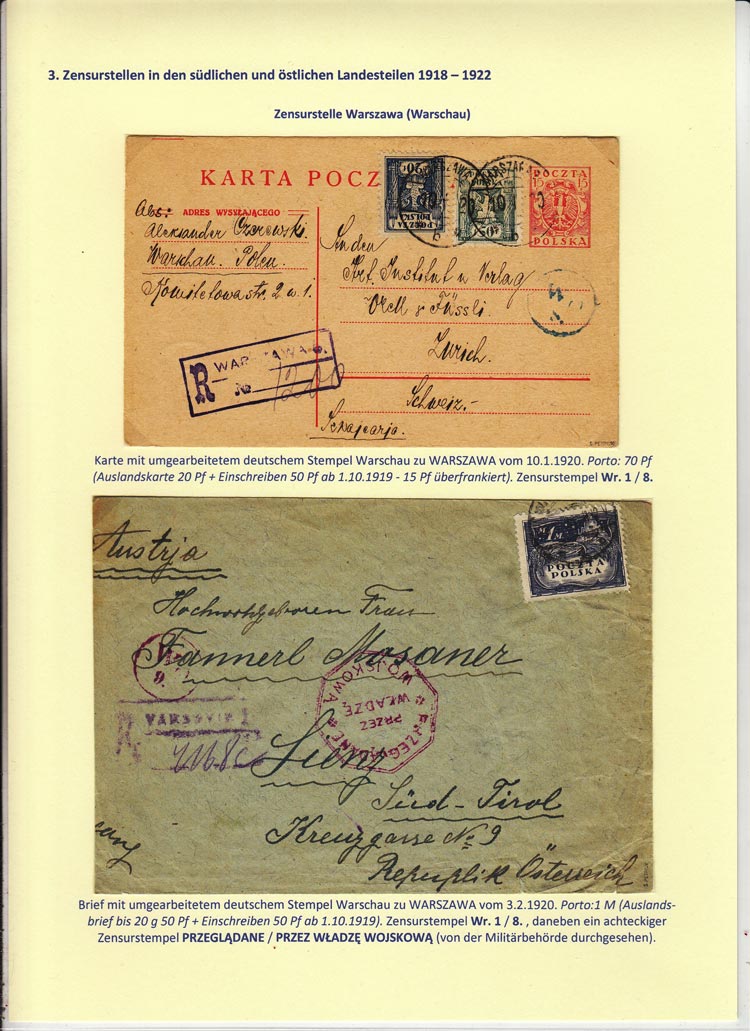 3. Zensurstellen in den südlichen und östlichen Landesteilen 1918 – 1922
Zensurstelle Warszawa (Warschau)
KARTA POCZ
20
POCZTA
POLSKA
50
WARSZAWA
b
POCZTA
15 15
POLSKA
Abs:
ADRES WYSYŁAJĄCEGO
Aleksander
Warschau. Polen.
Komitetowa str. 2 w. 1.
An den
Art. Institut u Verlag
Orell & Füssli.
Zürich.
Schweiz.-
R WARSZAWA
№ 1200
Karte mit umgearbeitetem deutschem Stempel Warschau zu WARSZAWA vom 10.1.1920. Porto: 70 Pf
(Auslandskarte 20 Pf + Einschreiben 50 Pf ab 1.10.1919 - 15 Pf überfrankiert). Zensurstempel Wr. 1 / 8.
1M
POCZTA
POLSKA
Austrja
Hochwohlgeboren Frau
Fannerl Mosaner
PRZEGLĄDANE
PRZEZ
WŁADZĘ
WOJSKOWĄ
R
Lienz
Süd-Tirol
Kreuzgasse № 9
Republik Österreich
Brief mit umgearbeitetem deutschem Stempel Warschau zu WARSZAWA vom 3.2.1920. Porto:1 M (Auslands-
brief bis 20 g 50 Pf + Einschreiben 50 Pf ab 1.10.1919). Zensurstempel Wr. 1 / 8. , daneben ein achteckiger
Zensurstempel PRZEGLĄDANE / PRZEZ WŁADZĘ WOJSKOWĄ (von der Militärbehörde durchgesehen).